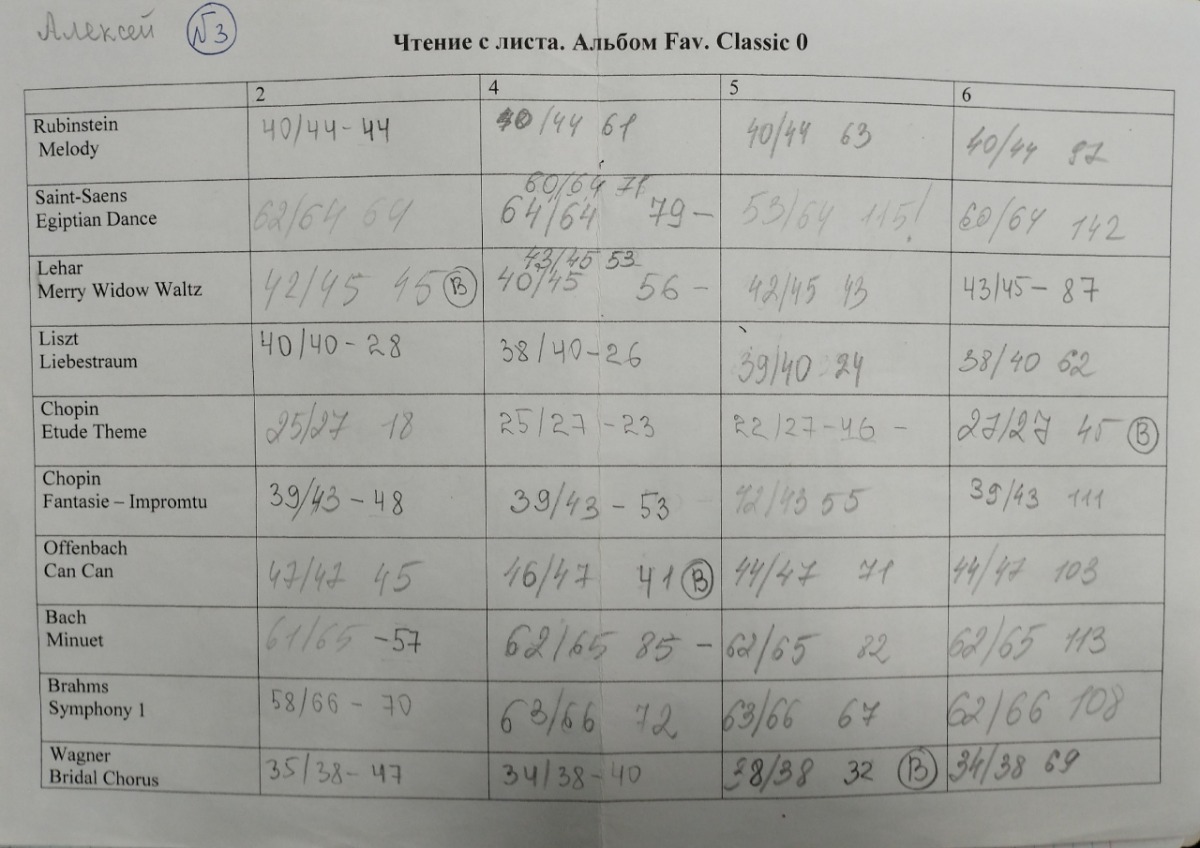 Алексей №3
Чтение с листа. Альбом Fav. Classic 0
2 4 5 6
Rubinstein
Melody
40/44 - 44 40/44 61 40/44 63 40/44 97
Saint-Saens
Egiptian Dance
60/64 71
62/64 64 64/64 79 - 53/64 115! 60/64 142
Lehar
Merry Widow Waltz
43/45 53
42/45 45 В 40/45 56 - 42/45 43 43/45 - 87
Liszt
Liebestraum
40/40 - 28 38/40 - 26 39/40 24 38/40 62
Chopin
Etude Theme
25/27 18 25/27 - 23 22/27 - 46 - 27/27 45 В
Chopin
Fantasie – Impromtu
39/43 - 48 39/43 - 53 42/43 55 39/43 111
Offenbach
Can Can
47/47 45 46/47 41 В 44/47 71 44/47 103
Bach
Minuet
61/65 - 57 62/65 85 - 62/65 82 62/65 113
Brahms
Symphony 1
58/66 - 70 63/66 72 63/66 67 62/66 108
Wagner
Bridal Chorus
35/38 - 47 34/38 - 40 38/38 32 В 34/38 69